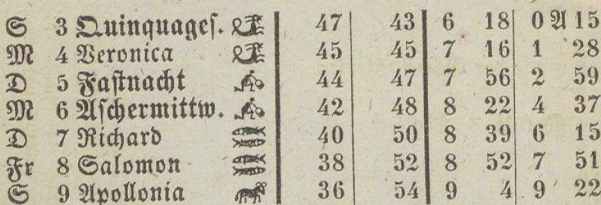 S 3 Quinquages. 47 43 6 18 0 A 15
M 4 Veronica 45 45 7 16 1 28
D 5 Fastnacht 44 47 7 56 2 59
M 6 Aschermittw. 42 48 8 22 4 37
D 7 Richard 40 50 8 39 6 15
Fr 8 Salomon 38 52 8 52 7 51
S 9 Apollonia 36 54 9 4 9 22